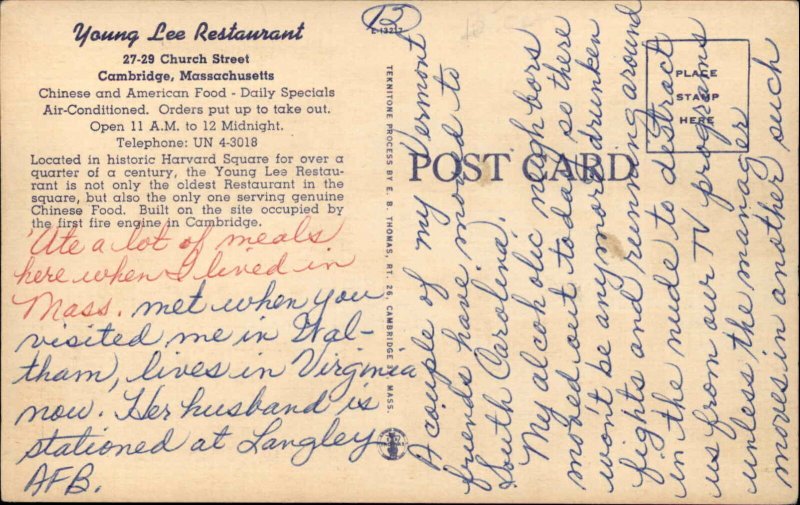 Young Lee Restaurant
27-29 Church Street
Cambridge, Massachusetts
Chinese and American Food - Daily Specials
Air-Conditioned. Orders put up to take out.
Open 11 A.M. to 12 Midnight.
Telephone: UN 4-3018
Located in historic Harvard Square for over a
quarter of a century, the Young Lee Restau-
rant is not only the oldest Restaurant in the
square, but also the only one serving genuine
Chinese Food. Built on the site occupied by
the first fire engine in Cambridge.
Ate a lot of meals
here when I lived in
Mass. met when you
visited me in Wal-
tham, lives in Virginia
now. Her husband is
stationed at Langley
AFB.
TEKNITONE PROCESS BY E. B. THOMAS, RT. 26, CAMBRIDGE MASS.
13
E-13217
POST CARD
PLACE
STAMP
HERE
A couple of my Vermont
friends have moved to
South Carolina.
My alcoholic neighbors
moved out today so there
won't be anymore drunken
fights and running around
in the nude to destract
us from our TV programs
unless the manager
moves in another such